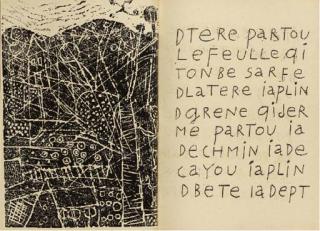 DTERE PARTOU
LEFEULLE QI
TONBE SARFE
DLATERE IAPLIN
DGRENE QIJER
ME PARTOU IA
DECHMIN IADE
CAYOU IAPLIN
DBETE IADEPT